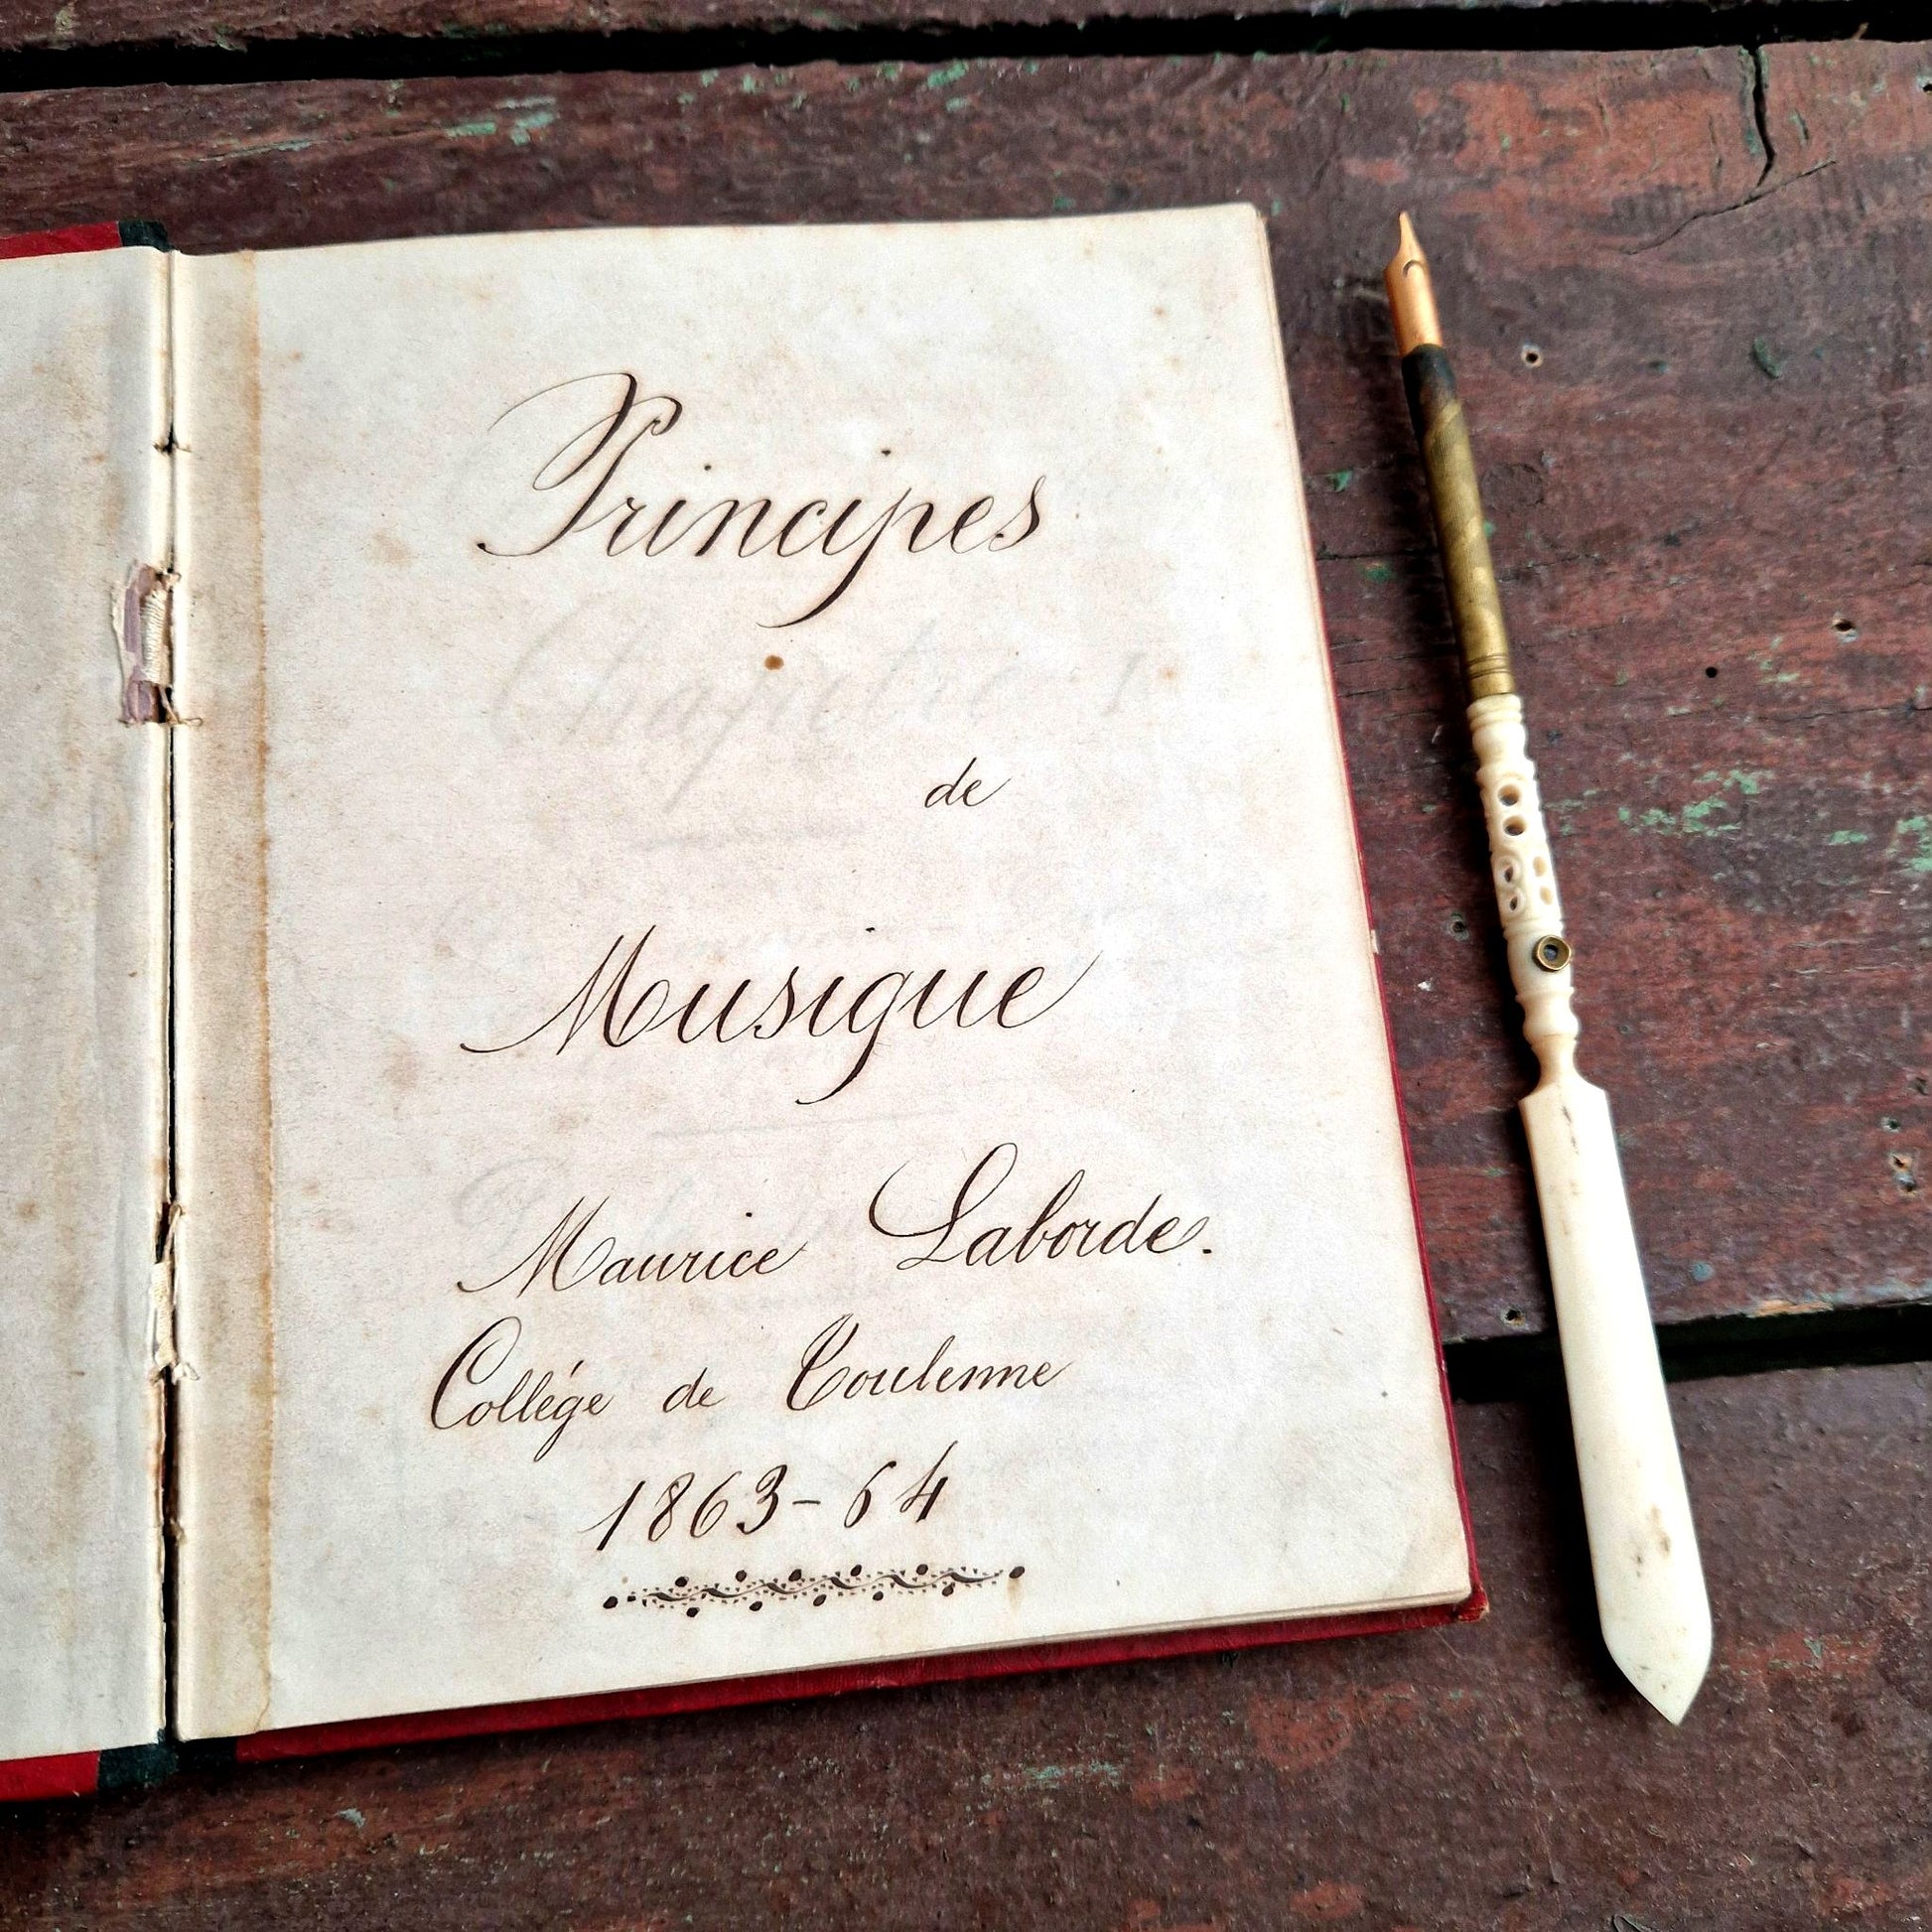 Principes
de
Musique
Maurice Laborde.
Collége de Toulenne
1863-64